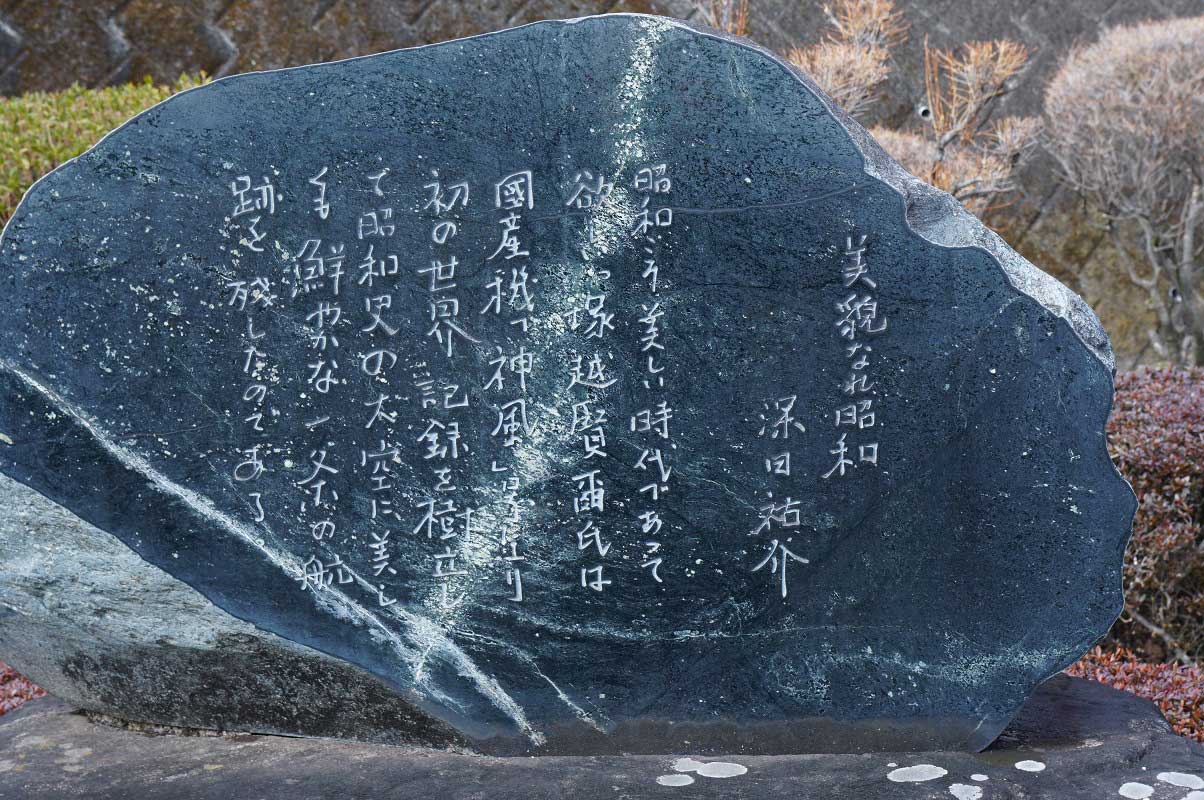 美貌なれ昭和
深田祐介
昭和こそ美しい時代であって
欲しい塚越賢爾氏は
國産機「神風」号により
初の世界記録を樹立し
て昭和史の大空に美し
くも鮮やかな一条の航
跡を残したのである